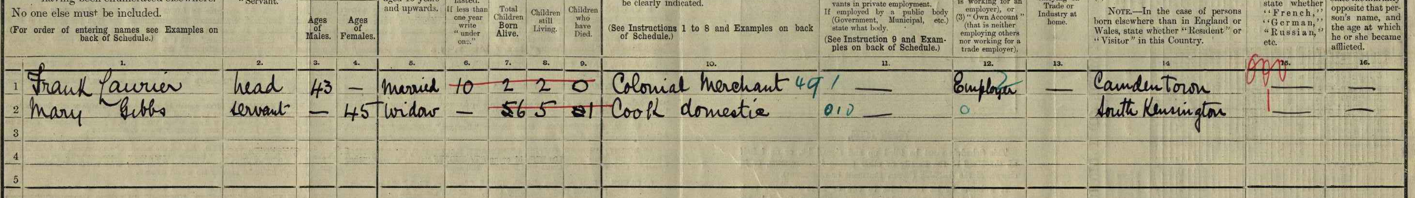 No one else must be included.
(For order of entering names see Examples on back of Schedule.)
Servant.
Ages of Males.
Ages of Females.
and upwards.
If less than one year write "under one."
Total Children Born Alive.
Children still Living.
Children who have Died.
be clearly indicated.
(See Instructions 1 to 8 and Examples on back of Schedule.)
vants in private employment.
If employed by a public body (Government, Municipal, etc.) state what body.
(See Instruction 9 and Examples on back of Schedule.)
is working for an employer), or
(3) "Own Account" (that is neither employing others nor working for a trade employer).
Trade or Industry at home.
NOTE.—In the case of persons born elsewhere than in England or Wales, state whether "Resident" or "Visitor" in this Country.
state whether "French," "German," "Russian," etc.
opposite that person's name, and the age at which he or she became afflicted.
1. 2. 3. 4. 5. 6. 7. 8. 9. 10. 11. 12. 13. 14 15. 16.
1 Frank Laurier head 43 — Married 10 2 2 0 Colonial Merchant 491 — Employer — Camden Town — —
2 Mary Gibbs servant — 45 Widow — 56 5 01 Cook domestic 010 — 0 South Kensington — —
3
4
5